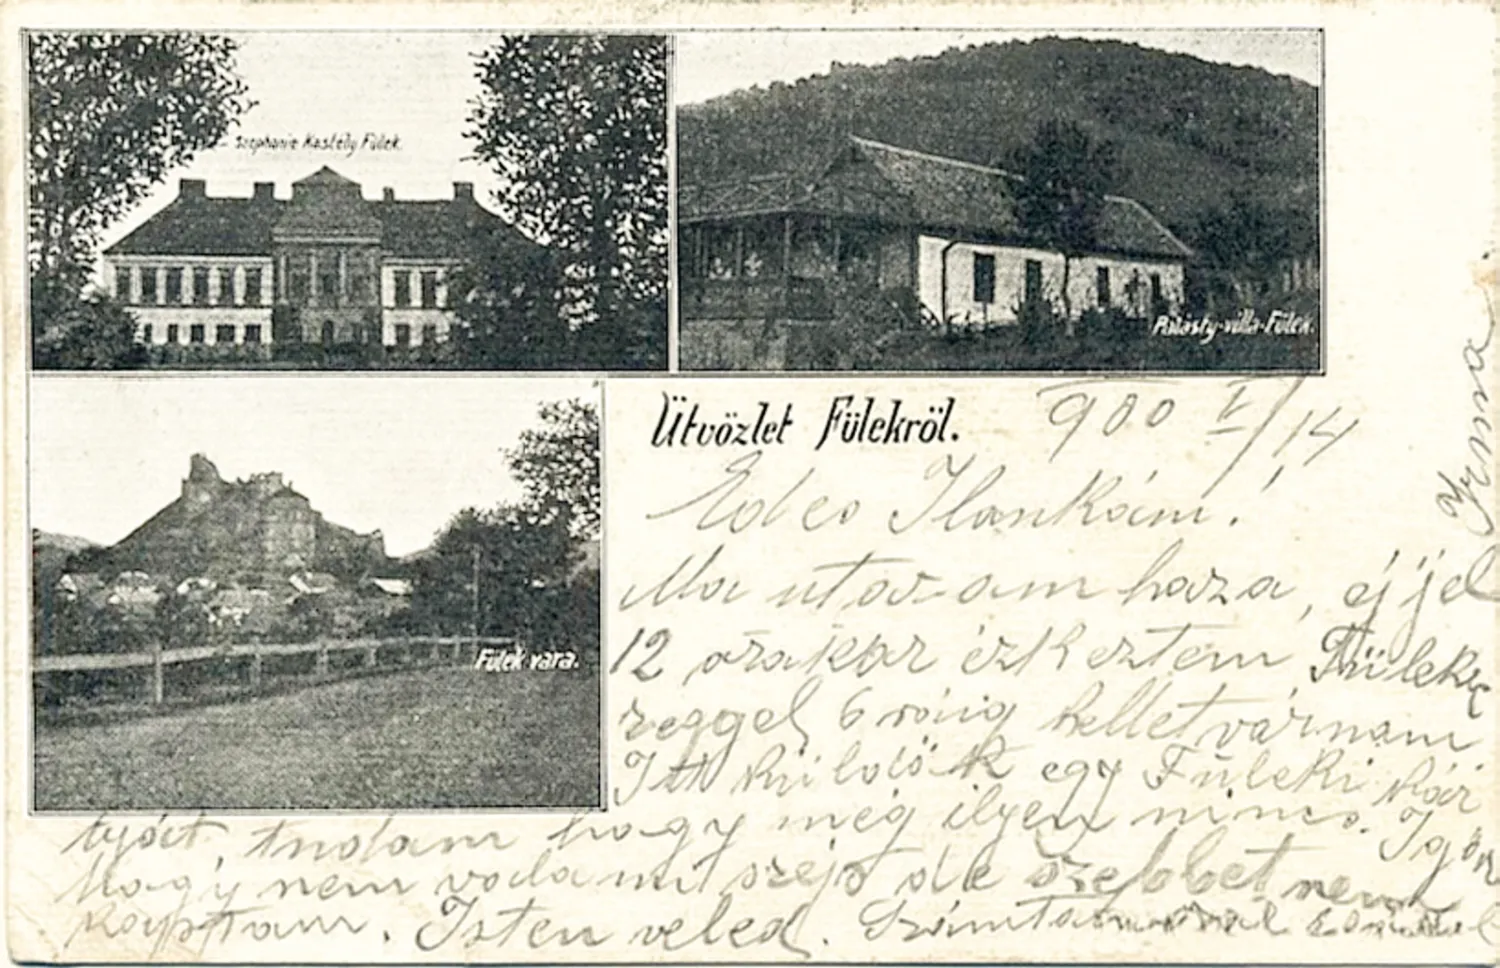 Stephanie Kastély Fülek.
Palásty-villa-Fülek.
Fülek vára.
Üdvözlet Fülekről.
900 V/14
Edes Ilonkám!
Ma utazam haza, éjjel
12 órakor érkeztem Fülekre
reggel 6 róáig kelletvárnam
Itt küldök egy Füleki kár
tyát, tudam hogy még ilyen nincs. Igaz
hogy nem valami szép de szebbet nem
kaptam. Isten veled.
Irma